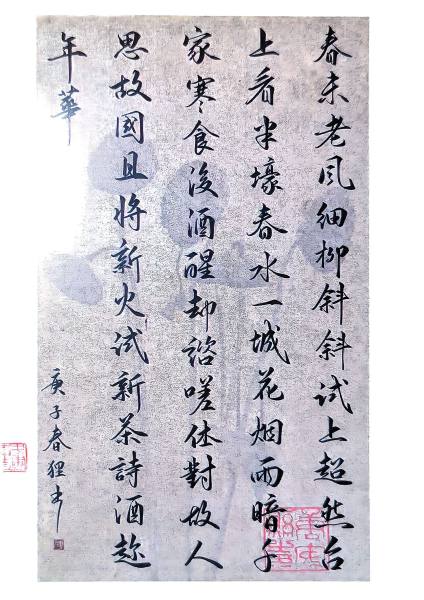 春未老风細柳斜斜試上超然台
上看半壕春水一城花烟雨暗千
家寒食後酒醒却諮嗟休對故人
思故國且將新火試新茶詩酒趁
年華
庚子春狸书